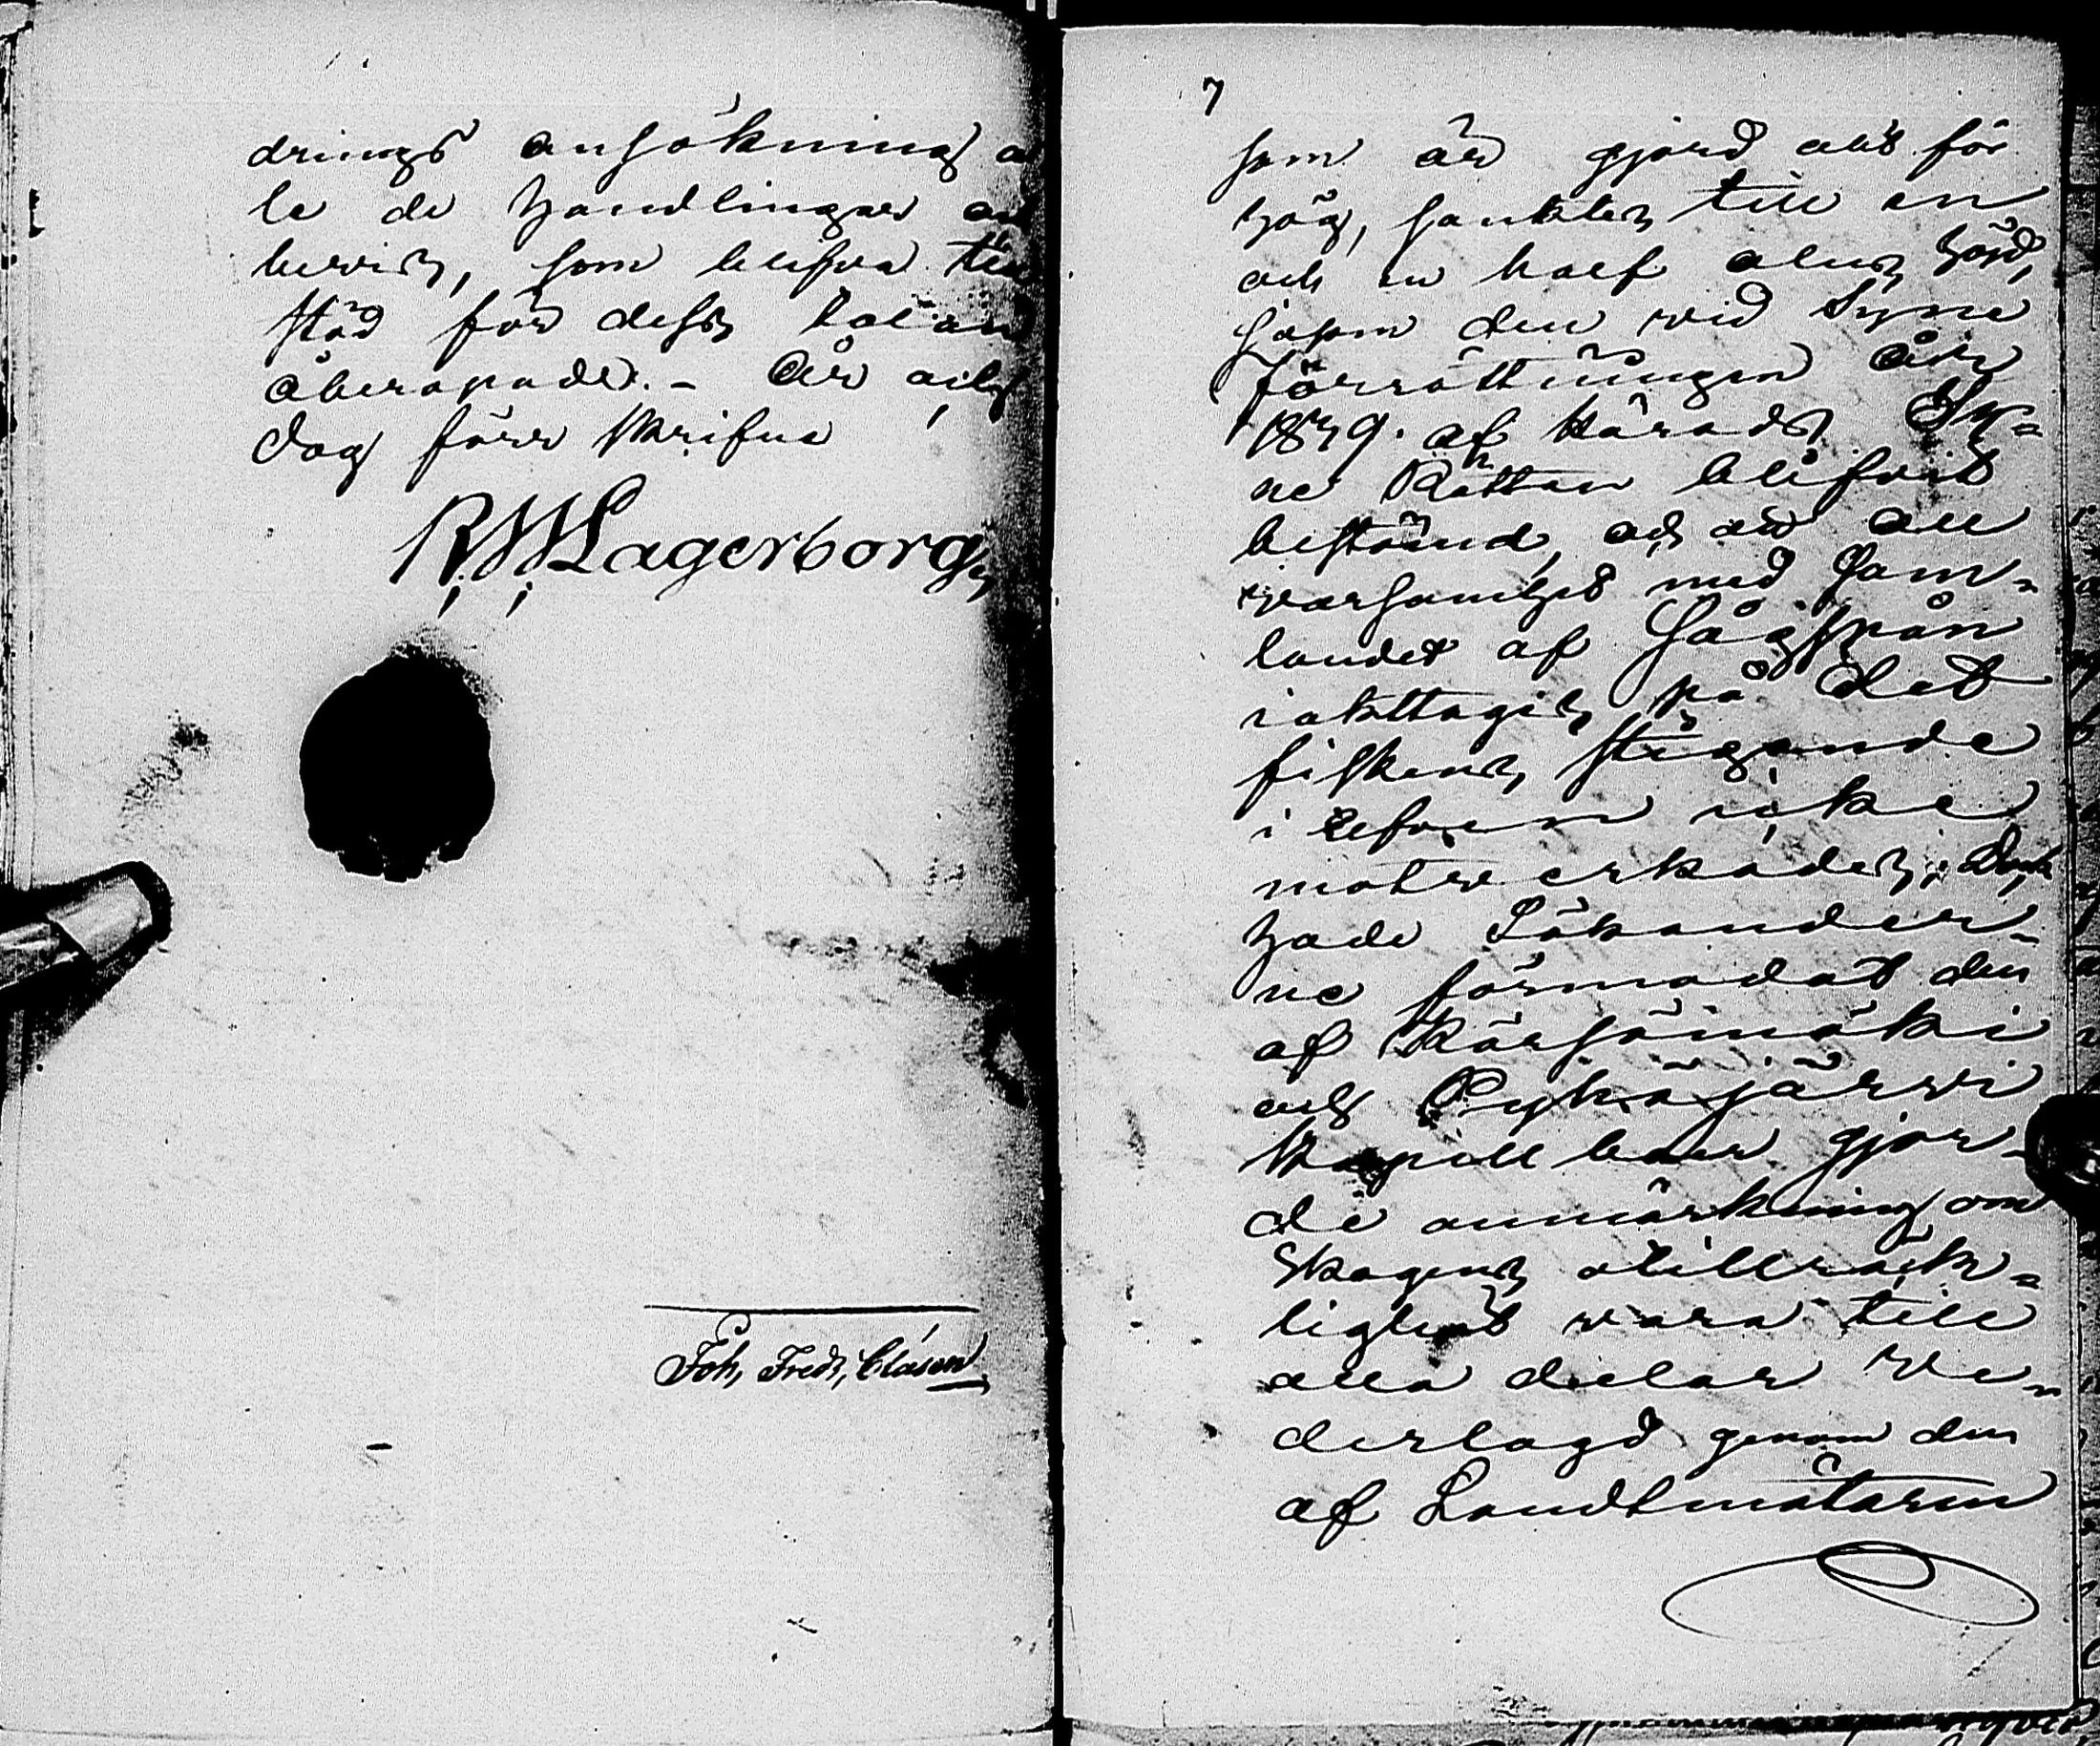 drings ansökning a
le de handlingar och
bevis, som blifva till
stöd för dess talan
åberopade. - År och
dag förr skrifne
R. W. Lagerborg
Joh, Fredr, Clasen
7
som är gjord allt för
hög, sänktes till en
och en half alns höjd,
såsom den vid Syne
förrättningen år
1839. af Härads Sy=
ne Rätten blifvit
bestämd, och att all
varsamhet med Sam=
landet af Sågspån
iakttages, på det
fiskens stigande
i elfven icke
motverkades; Dock
hade Sökander=
ne förmodat den
af Kärsämäki
och Pyhäjärvi
Kapell boer gjor=
de anmärkning om
Skogens otillräck=
lighet vara till
alla delar ve=
derlagd genom den
af Landtmätaren